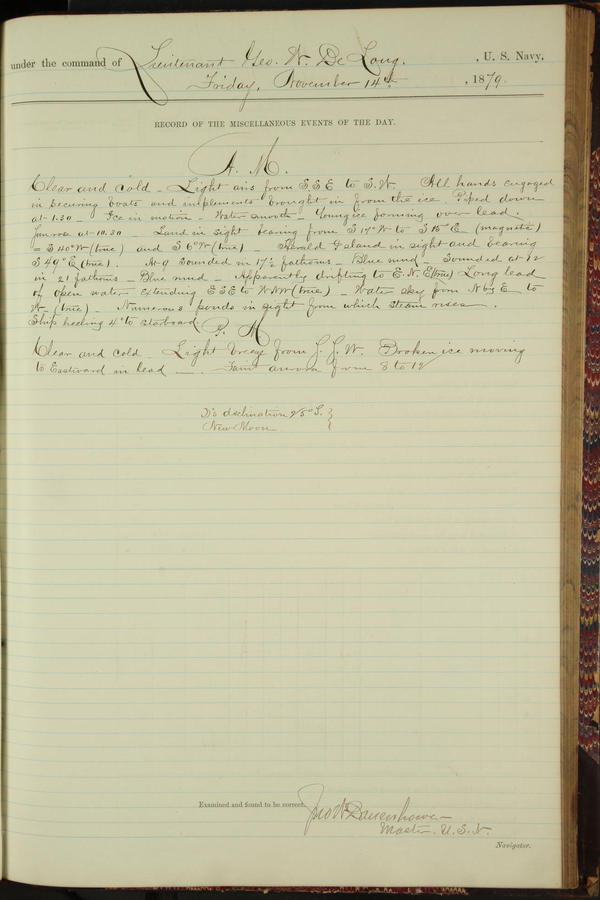 under the command of Lieutenant Geo. W. De Long. , U. S. Navy,
Friday, November 14th , 1879.
RECORD OF THE MISCELLANEOUS EVENTS OF THE DAY.
A. M.
Clear and cold – Light airs from S.S.E to S.W. All hands engaged
in securing boats and implements brought in from the ice. Piped down
at 1.30 – Ice in motion – Water smooth – Young ice forming over lead.
Sunrose at 10.30 – Land in sight bearing from S 17° W to S 15° E (magnetic)
= S 40° W (true) and S 6° W (true) – Herald Island in sight and bearing
S 49° E (true). At 9 sounded in 17½ fathoms – Blue mud – Sounded at 12
in 21 fathoms – Blue mud – Apparently drifting to E.N.E (true) Long lead
of open water extending ESE to WNW (true) – Water sky from N by E to
W – (true) – Numerous ponds in sight from which steam rises.
Ship heeling 4° to starboard.
P. M
Clear and cold – Light breeze from S.S.W. Broken ice moving
to Eastward in lead –. Faint aurora from 8 to 12
D's declination 25° S. }
New Moon }
Examined and found to be correct. Jno W Danenhower
Master. U.S.N.
Navigator.